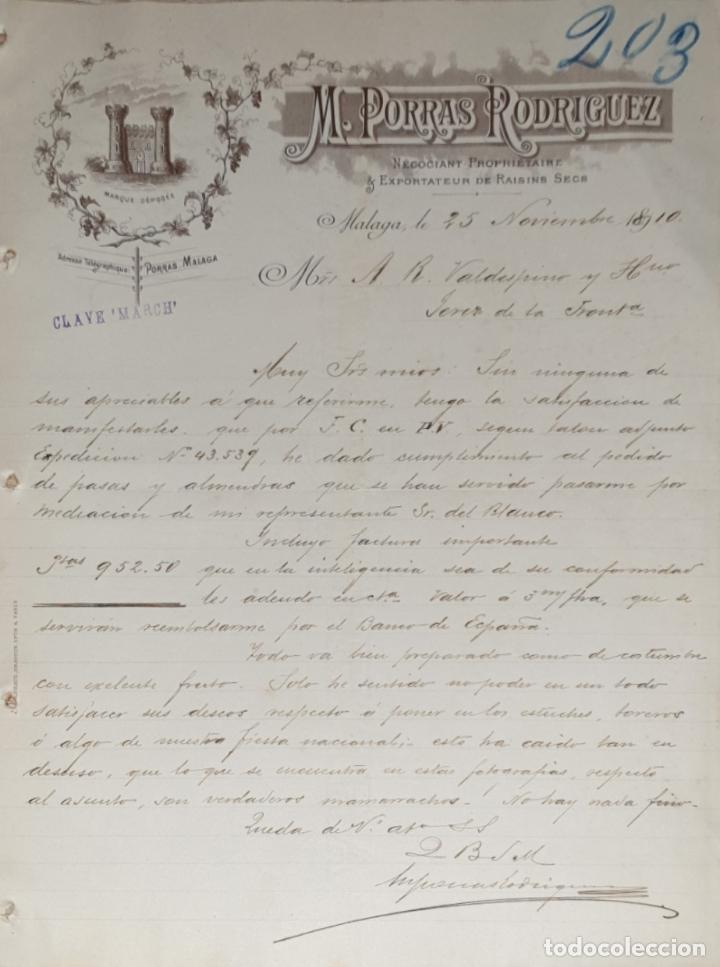 203
M. PORRAS RODRIGUEZ
NÉGOCIANT PROPRIÉTAIRE
& EXPORTATEUR DE RAISINS SECS
MARQUE DÉPOSÉE
Malaga, le 25 Noviembre 1910.
Adresse Télégraphique: PORRAS MALAGA
Mrs A. R. Valdespino y Hno
CLAVE 'MARCH'
Jerez de la Frontª
Muy Srs mios: Sin ninguna de
sus apreciables á que referirme, tengo la satisfaccion de
manifestarles, que por F. C. en P.V., segun talon adjunto
Expedicion Nº 43.539, he dado cumplimiento al pedido
de pasas y almendras que se han servido pasarme por
mediacion de mi representante Sr. del Blanco.
Incluyo factura importante
Ptas 952.50 que en la inteligencia sea de su conformidad
les adeudo en cta Valor á 3 m/ fha, que se
servirán reembolsarme por el Banco de España.
Todo vá bien preparado como de costumbre
con exelente fruto. Solo he sentido no poder en un todo
satisfacer sus deseos respecto á poner en los estuches, toreros
ó algo de nuestra fiesta nacional; esto ha caido tan en
desuso, que lo que se encuentra en estas fotografias, respecto
al asunto, son verdaderos mamarrachos.! No hay nada fino.
Queda de V. ato SS
Q B S M
MPorrasRodriguez
todocoleccion
todocoleccion.net